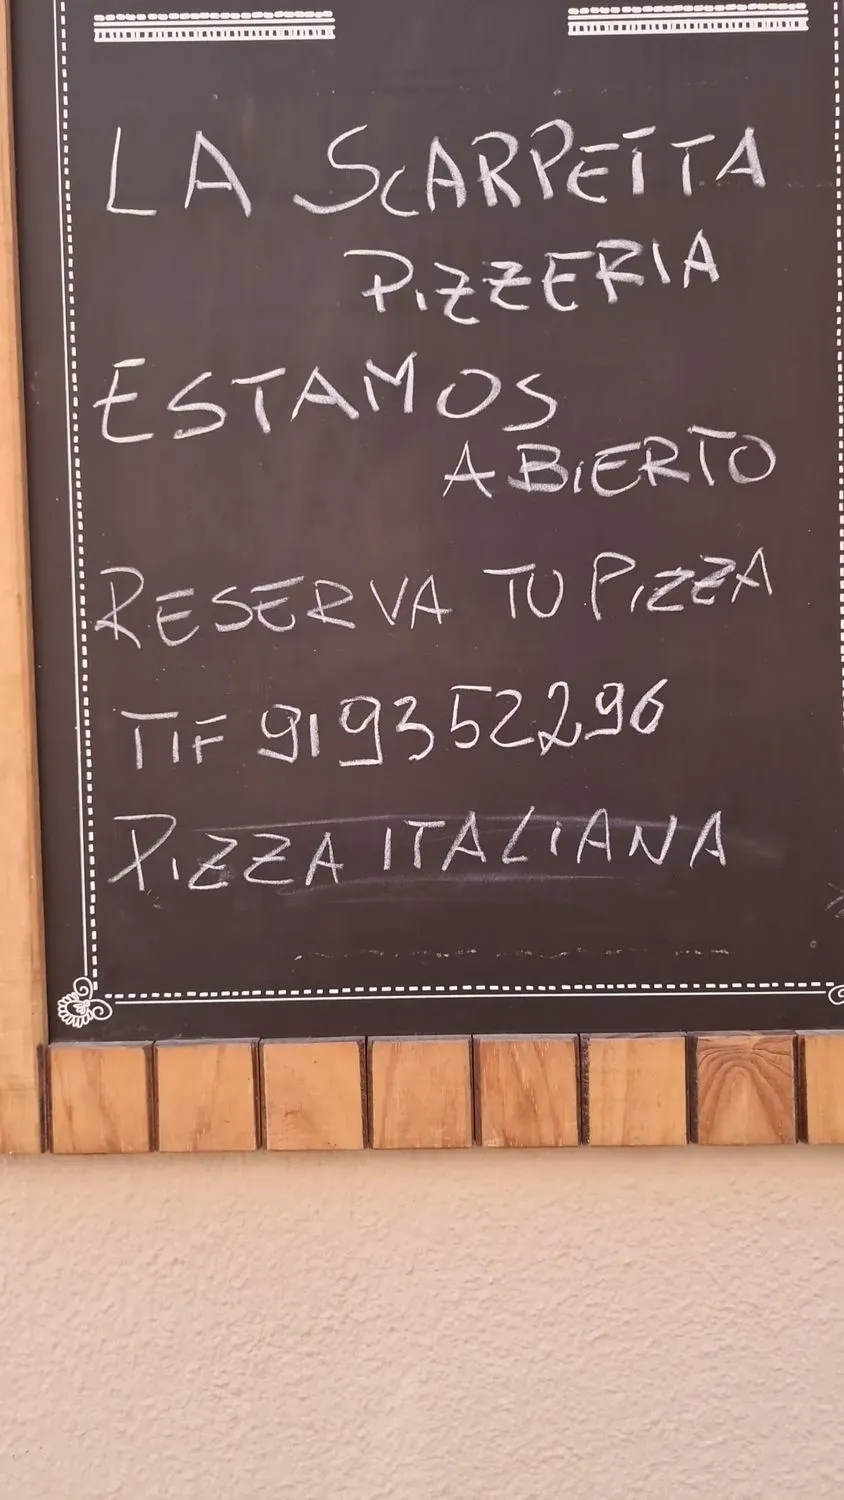 LA SCARPETTA
PIZZERIA
ESTAMOS
ABIERTO
RESERVA TU PIZZA
TIF 919352296
PIZZA ITALIANA